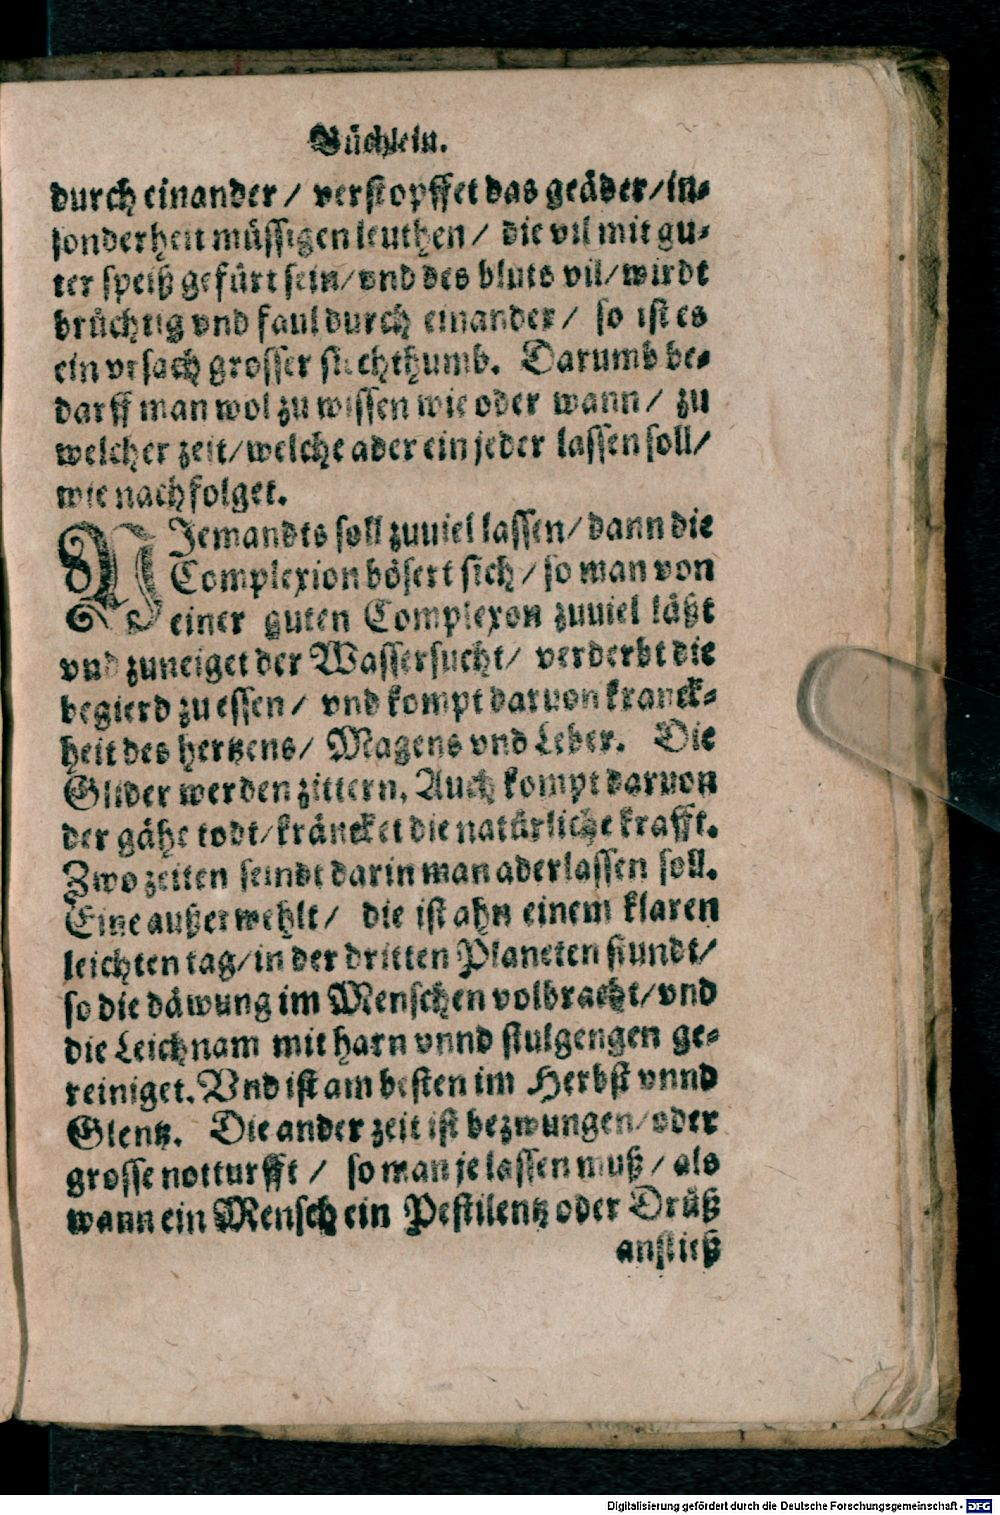 Büchlein.
durch einander / verstopffet das geäder / in-
sonderheit müssigen leuthen / die vil mit gu-
ter speiß gefürt sein / vnd des bluts vil / wirdt
brüchtig vnd faul durch einander / so ist es
ein vrsach grosser siechthumb. Darumb be-
darff man wol zu wissen wie oder wann / zu
welcher zeit / welche ader ein jeder lassen soll /
wie nachfolget.
NJemandts soll zuuiel lassen / dann die
Complexion bösert sich / so man von
einer guten Complexon zuuiel läßt
vnd zuneiget der Wassersucht / verderbt die
begierd zu essen / vnd kompt daruon kranck-
heit des hertzens / Magens vnd Leber. Die
Glider werden zittern, Auch kompt daruon
der gähe todt / kräncket die natürliche krafft.
Zwo zeiten seindt darin man aderlassen soll.
Eine außerwehlt / die ist ahn einem klaren
leichten tag / in der dritten Planeten stundt /
so die däwung im Menschen volbracht / vnd
die Leichnam mit harn vnnd stulgengen ge-
reiniget. Vnd ist am besten im Herbst vnnd
Glentz. Die ander zeit ist bezwungen / oder
grosse notturfft / so man je lassen muß / als
wann ein Mensch ein Pestilentz oder Drüß
anstieß
Digitalisierung gefördert durch die Deutsche Forschungsgemeinschaft - DFG